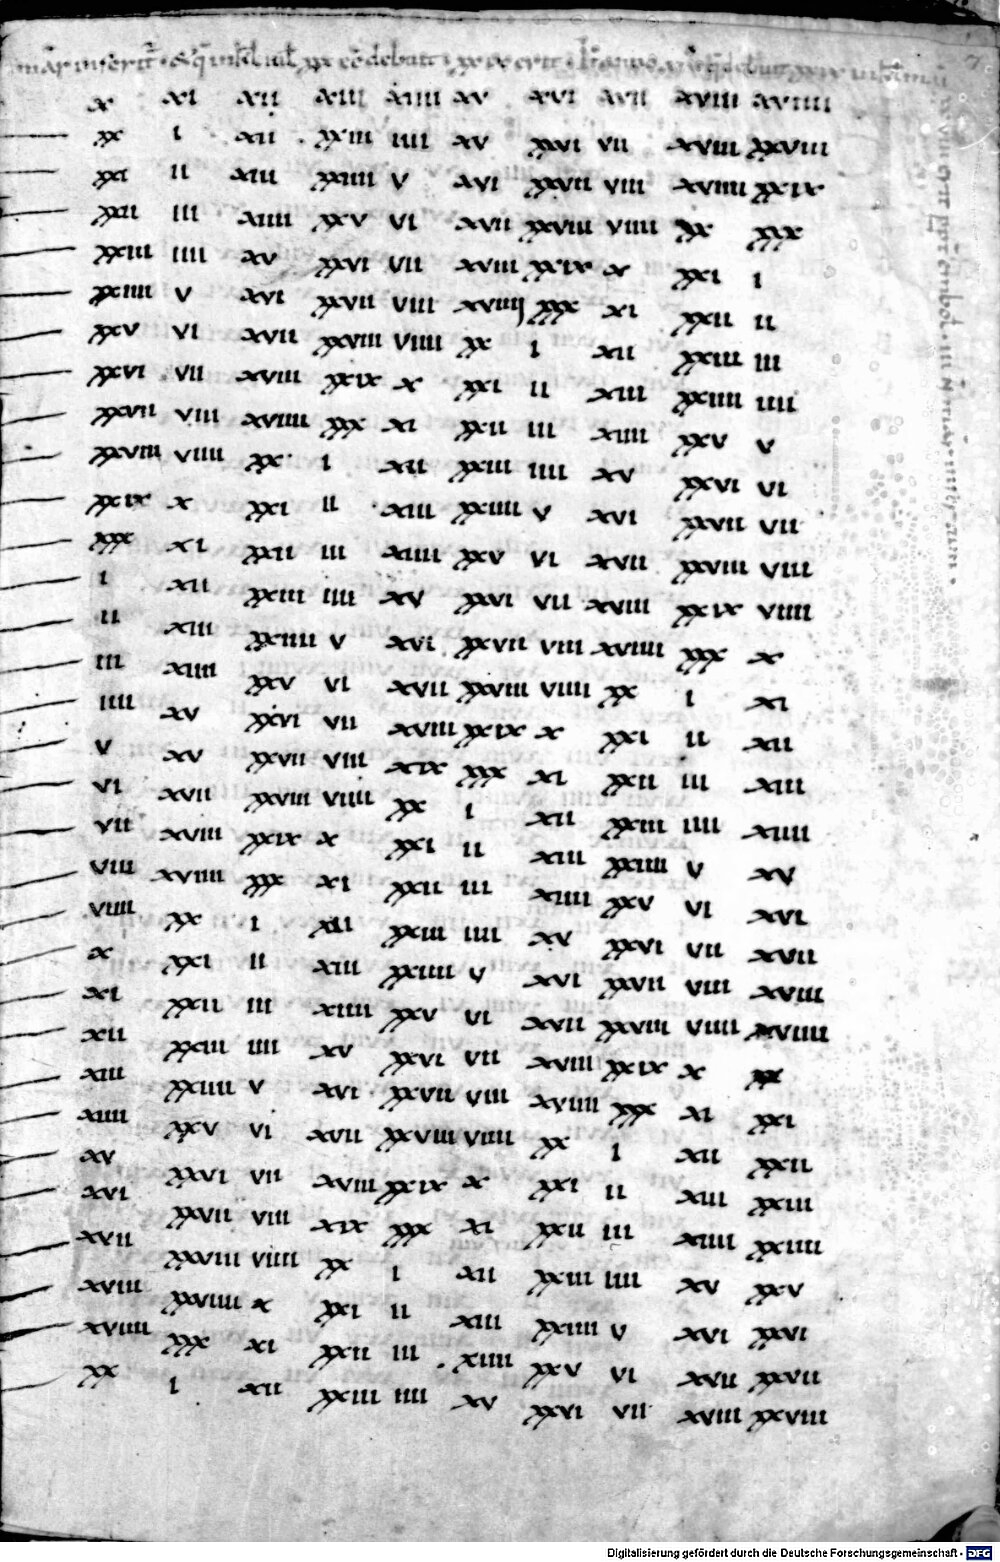 x xi xii xiii xiiii xv xvi xvii xviii xviiii
xx i xii xxiii iiii xv xxvi vii xviii xxviii
xxi ii xiii xxiiii v xvi xxvii viii xviiii xxix
xxii iii xiiii xxv vi xvii xxviii viiii xx xxx
xxiii iiii xv xxvi vii xviii xxix x xxi i
xxiiii v xvi xxvii viii xviiij xxx xi xxii ii
xxv vi xvii xxviii viiii xx i xii xxiii iii
xxvi vii xviii xxix x xxi ii xiii xxiiii iiii
xxvii viii xviiii xxx xi xxii iii xiiii xxv v
xxviii viiii xx i xii xxiii iiii xv xxvi vi
xxix x xxi ii xiii xxiiii v xvi xxvii vii
xxx xi xxii iii xiiii xxv vi xvii xxviii viii
i xii xxiii iiii xv xxvi vii xviii xxix viiii
ii xiii xxiiii v xvi xxvii viii xviiii xxx x
iii xiiii xxv vi xvii xxviii viiii xx i xi
iiii xv xxvi vii xviii xxix x xxi ii xii
v xv xxvii viii xix xxx xi xxii iii xiii
vi xvii xxviii viiii xx i xii xxiii iiii xiiii
vii xviii xxix x xxi ii xiii xxiiii v xv
viii xviiii xxx xi xxii iii xiiii xxv vi xvi
viiii xx i xii xxiii iiii xv xxvi vii xvii
x xxi ii xiii xxiiii v xvi xxvii viii xviii
xi xxii iii xiiii xxv vi xvii xxviii viiii xviiii
xii xxiii iiii xv xxvi vii xviii xxix x xx
xiii xxiiii v xvi xxvii viii xviiii xxx xi xxi
xiiii xxv vi xvii xxviii viiii xx i xii xxii
xv xxvi vii xviii xxix x xxi ii xiii xxiii
xvi xxvii viii xix xxx xi xxii iii xiiii xxiiii
xvii xxviii viiii xx i xii xxiii iiii xv xxv
xviii xxviiii x xxi ii xiii xxiiii v xvi xxvi
xviiii xxx xi xxii iii xiiii xxv vi xvii xxvii
xx i xii xxiii iiii xv xxvi vii xviii xxviii
Digitalisierung gefördert durch die Deutsche Forschungsgemeinschaft - DFG